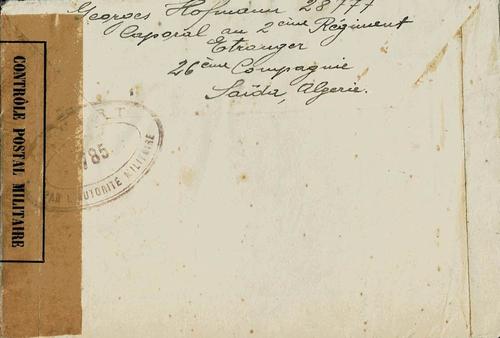 Georges Hofmann 28777
Caporal au 2ème Régiment
Etranger
26ème Compagnie
Saïda, Algerie.
CONTRÔLE POSTAL MILITAIRE
785
PAR L'AUTORITÉ MILITAIRE